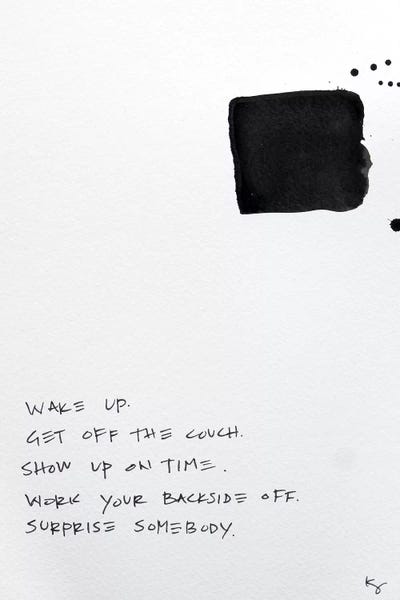 WAKE UP.
GET OFF THE COUCH.
SHOW UP ON TIME.
WORK YOUR BACKSIDE OFF.
SURPRISE SOMEBODY.